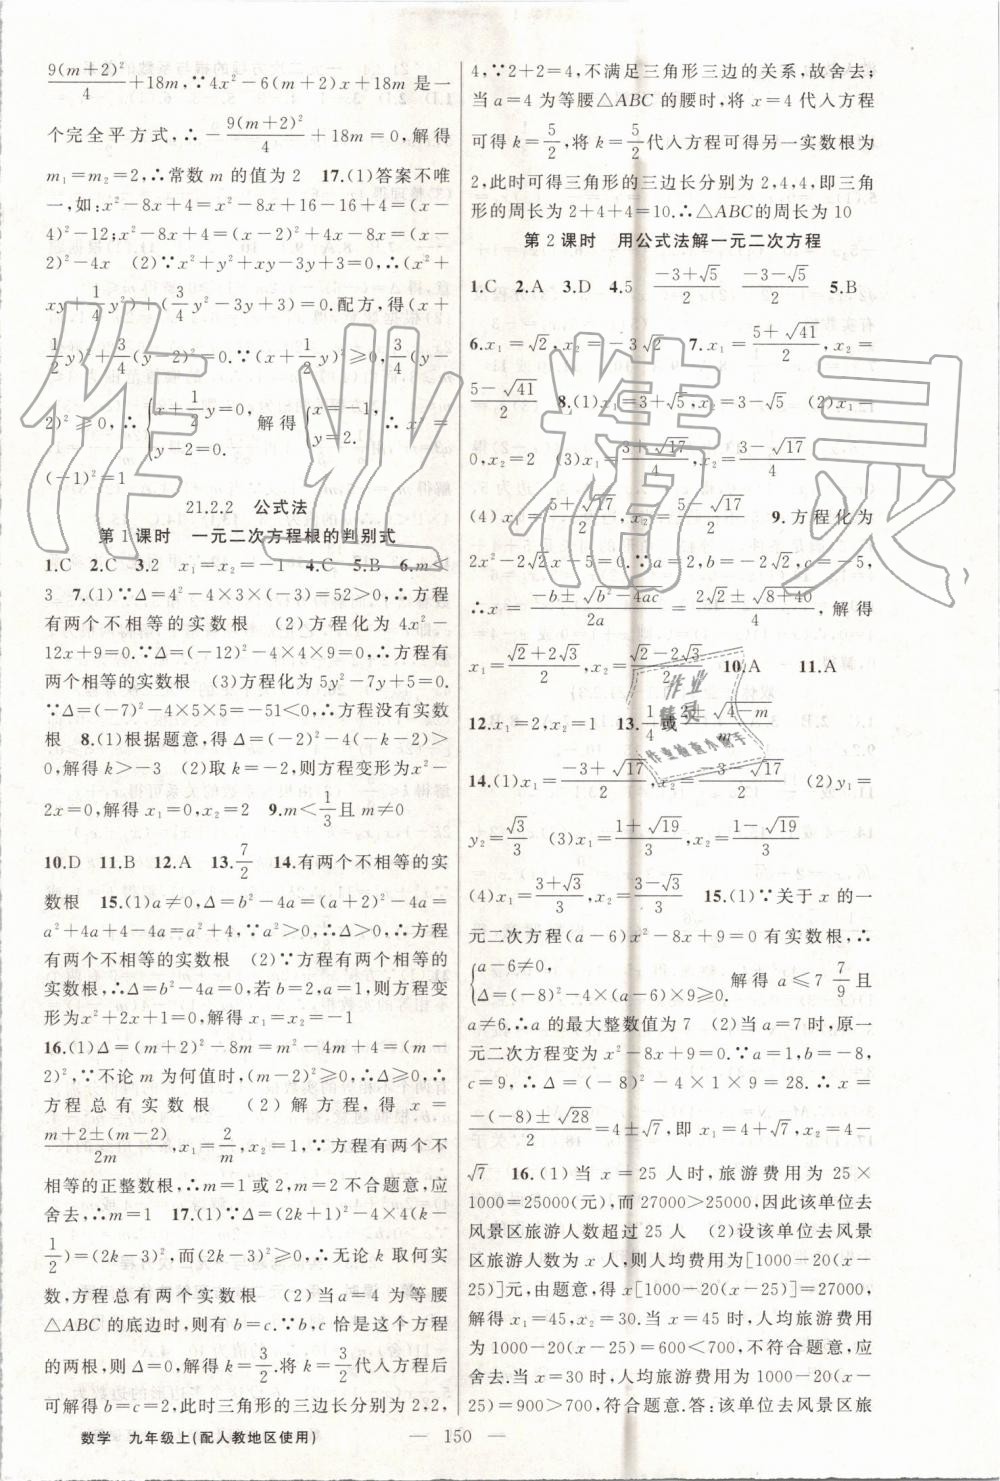 9(m+2)²/4+18m,∵4x²-6(m+2)x+18m 是一
个完全平方式,∴-9(m+2)²/4+18m=0,解得
m₁=m₂=2,∴常数 m 的值为 2 17.(1)答案不唯
一,如:x²-8x+4=x²-8x+16-16+4=(x-
4)²-12;x²-8x+4=(x-2)²-8x+4x=(x-2)²-4x (2)∵x²+y²+xy-3y+3=0,∴(x²+
xy+1/4y²)+(3/4y²-3y+3)=0.配方,得(x+
1/2y)²+3/4(y-2)²=0.∵(x+1/2y)²≥0,3/4(y-
2)²≥0,∴{x+1/2y=0, y-2=0. 解得{x=-1, y=2. ∴x^y=
(-1)²=1
21.2.2 公式法
第 1 课时 一元二次方程根的判别式
1.C 2.C 3.2 x₁=x₂=-1 4.C 5.B 6.m<
3 7.(1)∵Δ=4²-4×3×(-3)=52>0,∴方程
有两个不相等的实数根 (2)方程化为 4x²-
12x+9=0.∵Δ=(-12)²-4×4×9=0,∴方程有
两个相等的实数根 (3)方程化为 5y²-7y+5=0.
∵Δ=(-7)²-4×5×5=-51<0,∴方程没有实数
根 8.(1)根据题意,得 Δ=(-2)²-4(-k-2)>
0,解得 k>-3 (2)取 k=-2,则方程变形为 x²-
2x=0,解得 x₁=0,x₂=2 9.m<1/3且 m≠0
10.D 11.B 12.A 13.7/2 14.有两个不相等的实
数根 15.(1)a≠0,Δ=b²-4a=(a+2)²-4a=
a²+4a+4-4a=a²+4,∵a²>0,∴Δ>0,∴方程
有两个不相等的实数根 (2)∵方程有两个相等的
实数根,∴Δ=b²-4a=0,若 b=2,a=1,则方程变
形为x²+2x+1=0,解得 x₁=x₂=-1
16.(1)Δ=(m+2)²-8m=m²-4m+4=(m-
2)²,∵不论 m 为何值时,(m-2)²≥0,∴Δ≥0,∴
方程总有实数根 (2)解方程,得 x=
m+2±(m-2)/2m,x₁=2/m,x₂=1,∵方程有两个不
相等的正整数根,∴m=1 或 2,m=2 不合题意,应
舍去,∴m=1 17.(1)∵Δ=(2k+1)²-4×4(k-
1/2)=(2k-3)²,而(2k-3)²≥0,∴无论 k 取何实
数,方程总有两个实数根 (2)当a=4 为等腰
△ABC 的底边时,则有 b=c.∵b,c 恰是这个方程
的两根,则 Δ=0,解得 k=3/2.将 k=3/2代入方程后
可解得 b=c=2,此时三角形的三边长分别为 2,2,
4,∵2+2=4,不满足三角形三边的关系,故舍去;
当 a=4 为等腰△ABC 的腰时,将 x=4 代入方程
可得 k=5/2,将 k=5/2代入方程可得另一实数根为
2,此时可得三角形的三边长分别为 2,4,4,即三角
形的周长为 2+4+4=10.∴△ABC的周长为 10
第 2 课时 用公式法解一元二次方程
1.C 2.A 3.D 4.5 -3+√5/2 -3-√5/2 5.B
6.x₁=√2,x₂=-3√2 7.x₁=5+√41/2,x₂=
5-√41/2 8.(1)x₁=3+√5,x₂=3-√5 (2)x₁=
0,x₂=2 (3)x₁=3+√17/4,x₂=3-√17/4
(4)x₁=5+√17/2,x₂=5-√17/2 9.方程化为
2x²-2√2x-5=0.∵a=2,b=-2√2,c=-5,
∴x=-b±√b²-4ac/2a=2√2±√8+40/4,解得
x₁=√2+2√3/2,x₂=√2-2√3/2 10.A 11.A
12.x₁=2,x₂=1 13.1/4或2±√4-m/m
14.(1)x₁=-3+√17/2,x₂=-3-√17/2 (2)y₁=
y₂=√3/3 (3)x₁=1+√19/3,x₂=1-√19/3
(4)x₁=3+√3/3,x₂=3-√3/3 15.(1)∵关于 x 的一
元二次方程(a-6)x²-8x+9=0 有实数根,∴
{a-6≠0, Δ=(-8)²-4×(a-6)×9≥0. 解得 a≤7 7/9且
a≠6.∴a 的最大整数值为 7 (2)当 a=7 时,原一
元二次方程变为 x²-8x+9=0.∵a=1,b=-8,
c=9,∴Δ=(-8)²-4×1×9=28.∴x=
-(-8)±√28/2=4±√7,即 x₁=4+√7,x₂=4-
√7 16.(1)当 x=25 人时,旅游费用为 25×
1000=25000(元),而 27000>25000,因此该单位去
风景区旅游人数超过 25 人 (2)设该单位去风景
区旅游人数为 x 人,则人均费用为[1000-20(x-
25)]元,由题意,得 x[1000-20(x-25)]=27000,
解得 x₁=45,x₂=30.当 x=45 时,人均旅游费用
为 1000-20(x-25)=600<700,不符合题意,应舍
去.当 x=30 时,人均旅游费用为 1000-20(x-
25)=900>700,符合题意.答:该单位去风景区旅
数学 九年级上(配人教地区使用)
— 150 —
作业精灵
作业
精灵
作业检查小助手